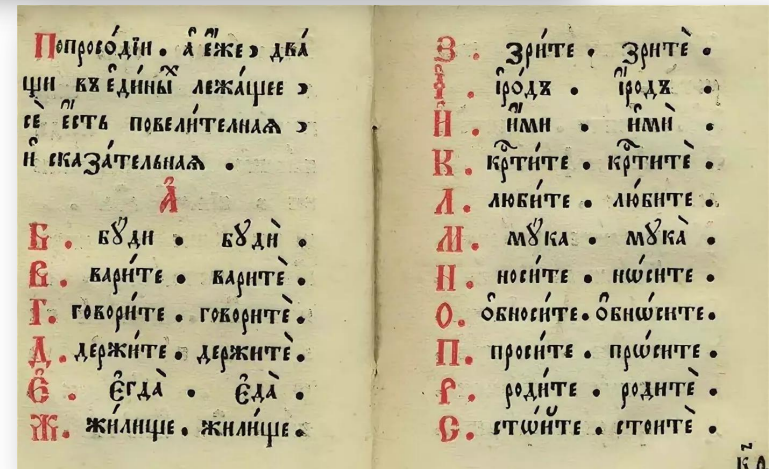 Попросо́дїи . а҆ є҆́же , два́
ши въ є҆ди́ныⷯ лежа́щее ,
сѐ є҆́сть повели́телнаѧ ,
и҆ сказа́тельнаѧ .
А҆
Б . бꙋ́ди . бꙋдѝ .
В . вари́те . варитѐ .
Г . говори́те . говоритѐ .
Д . держи́те . держитѐ .
Є҆ . є҆гда̀ . є҆да̀ .
Ж . жи́лище . жили́ще .
З . зри́те . зритѐ .
І҆ . і҆ро́дъ . і҆́родъ .
И҆ . и҆́ми . и҆мѝ .
К . крⷭ҇ти́те . крⷭ҇титѐ .
Л . люби́те . лю́бите .
М . мꙋ́ка . мꙋка̀ .
Н . носи́те . нѡ́сите .
О . о҆бноси́те . о҆бнѡ́сите .
П . проси́те . прѡ́сите .
Р . роди́те . родитѐ .
С . стѡ́ите . стоитѐ .